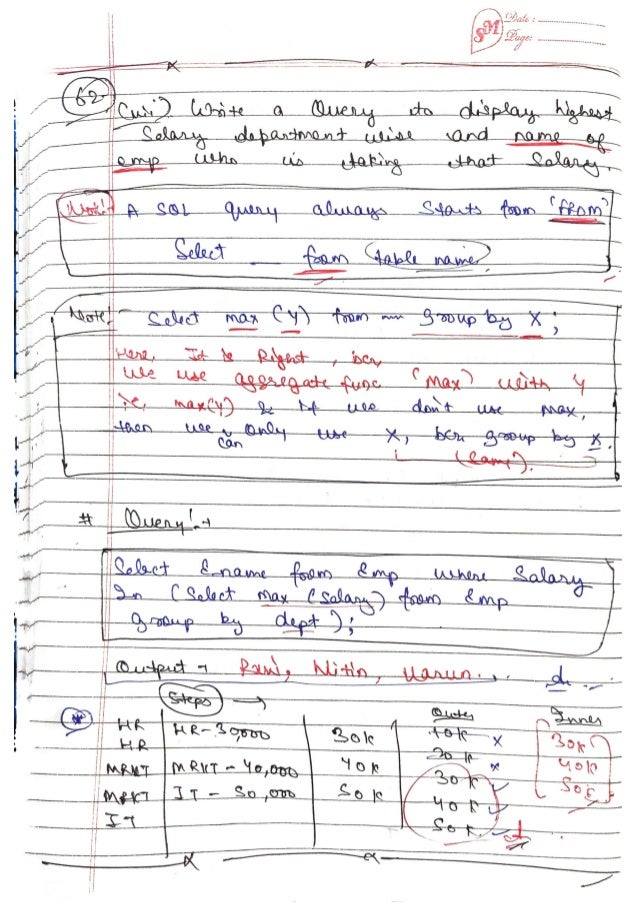 SM Date :
Page:
62
(viii) Write a Query to display highest
Salary department wise and name of
emp who is taking that Salary.
Note:- A SQL query always starts from 'FROM'
Select __ from (table name)
Note:- Select max (Y) from ~~ group by X ;
Here, It is Right, bcz
we use aggregate func (max) with Y
i.e, max(Y) & if we don't use max,
then we can only use X, bcz group by X.
(Same).
# Query:→
Select E-name from Emp where Salary
In (Select max (Salary) from Emp
group by dept );
Output → Ravi, Nitin, Varun..
Steps →
Outer Inner
HR HR-30,000 30K 10K x 30K
HR 20K x
MRKT MRKT - 40,000 40K 30K ✓ 40K
MRKT IT - 50,000 50K 40K ✓ 50K
IT 50K ✓